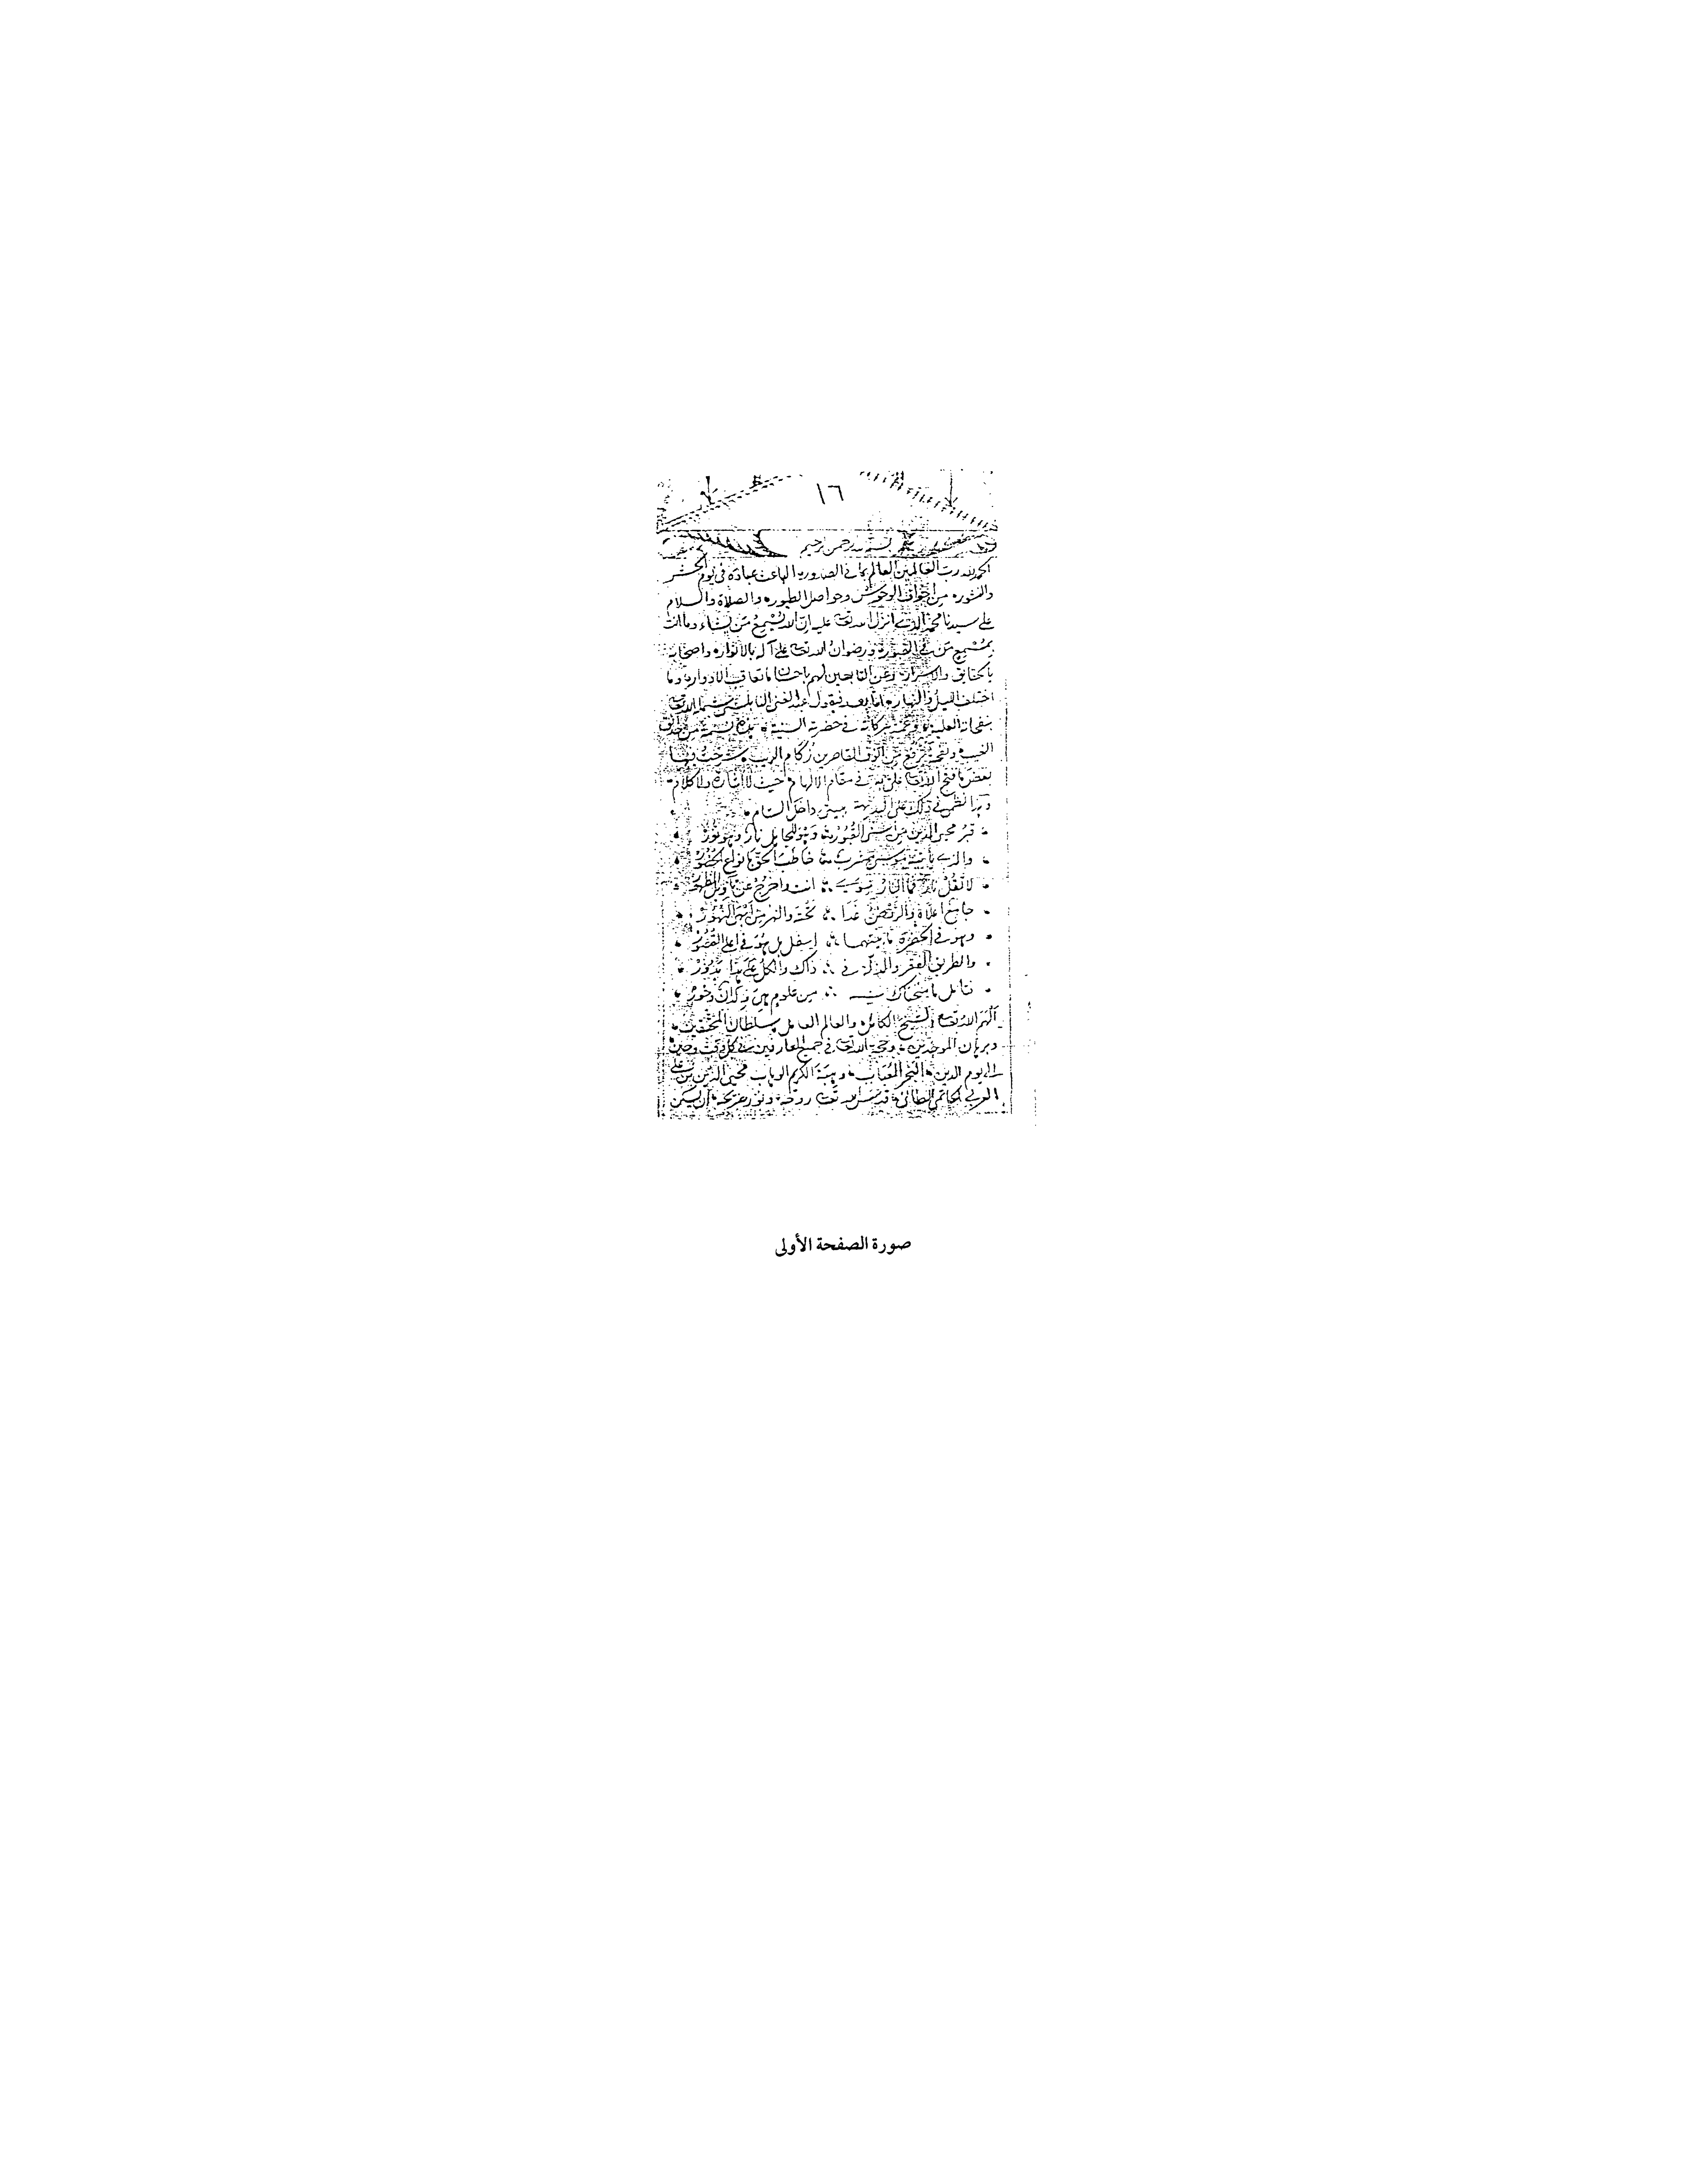 ١٦
بسم الله الرحمن الرحيم
الحمد لله رب العالمين العالم بما في الصدور الباعث عباده في يوم الحشر
والنشور من اجواف الوحوش وحواصل الطيور والصلاة والسلام
على سيدنا محمد الذي انزل الله تعالى عليه ان الله يسمع من يشاء وما انت
بمسمع من في القبور ورضوان الله تعالى على آله بالانوار واصحابه
بالحقايق والاسرار وعن التابعين لهم باحسان ما تعاقب الادوار وما
اختلف الليل والنهار اما بعد فيقول عبد الغني النابلسي
بنفحاته العلية في حضرته السنية نسيمة من
الغيب من انوف القاصرين زكام الريب شرحت فيها
بعض ما فتح الله تعالى في مقام الالهام حيث لا اشارة ولا كلام
نظمي في ذلك على البديهة داخل الشام
قبر محيي الدين من القبور وهو للجاهل نار وهو نور
والذي يأتيه خاطب الحق بانواع الحضور
لا تقل نار فما النار سوى انت واخرج عن
جامع اعلاه والروض غدا تحته والنهر من النهور
وهو في الحضرة ما بينهما اسفل بل هو في اعلى القصور
والطريق الفقر والذلة في ذاك والكل على هذا يدور
فتأمل ما من علوم هي
الهم الله تعالى الشيخ الكامل والعالم العامل سلطان المحققين
وبرهان الموحدين وحجة الله تعالى في جميع العارفين في كل وقت وحين
الى يوم الدين البحر العباب وهبة الكريم الوهاب محيي الدين بن علي
العربي الحاتمي الطائي قدس الله تعالى روحه ونور ضريحه ان يسكن
صورة الصفحة الأولى